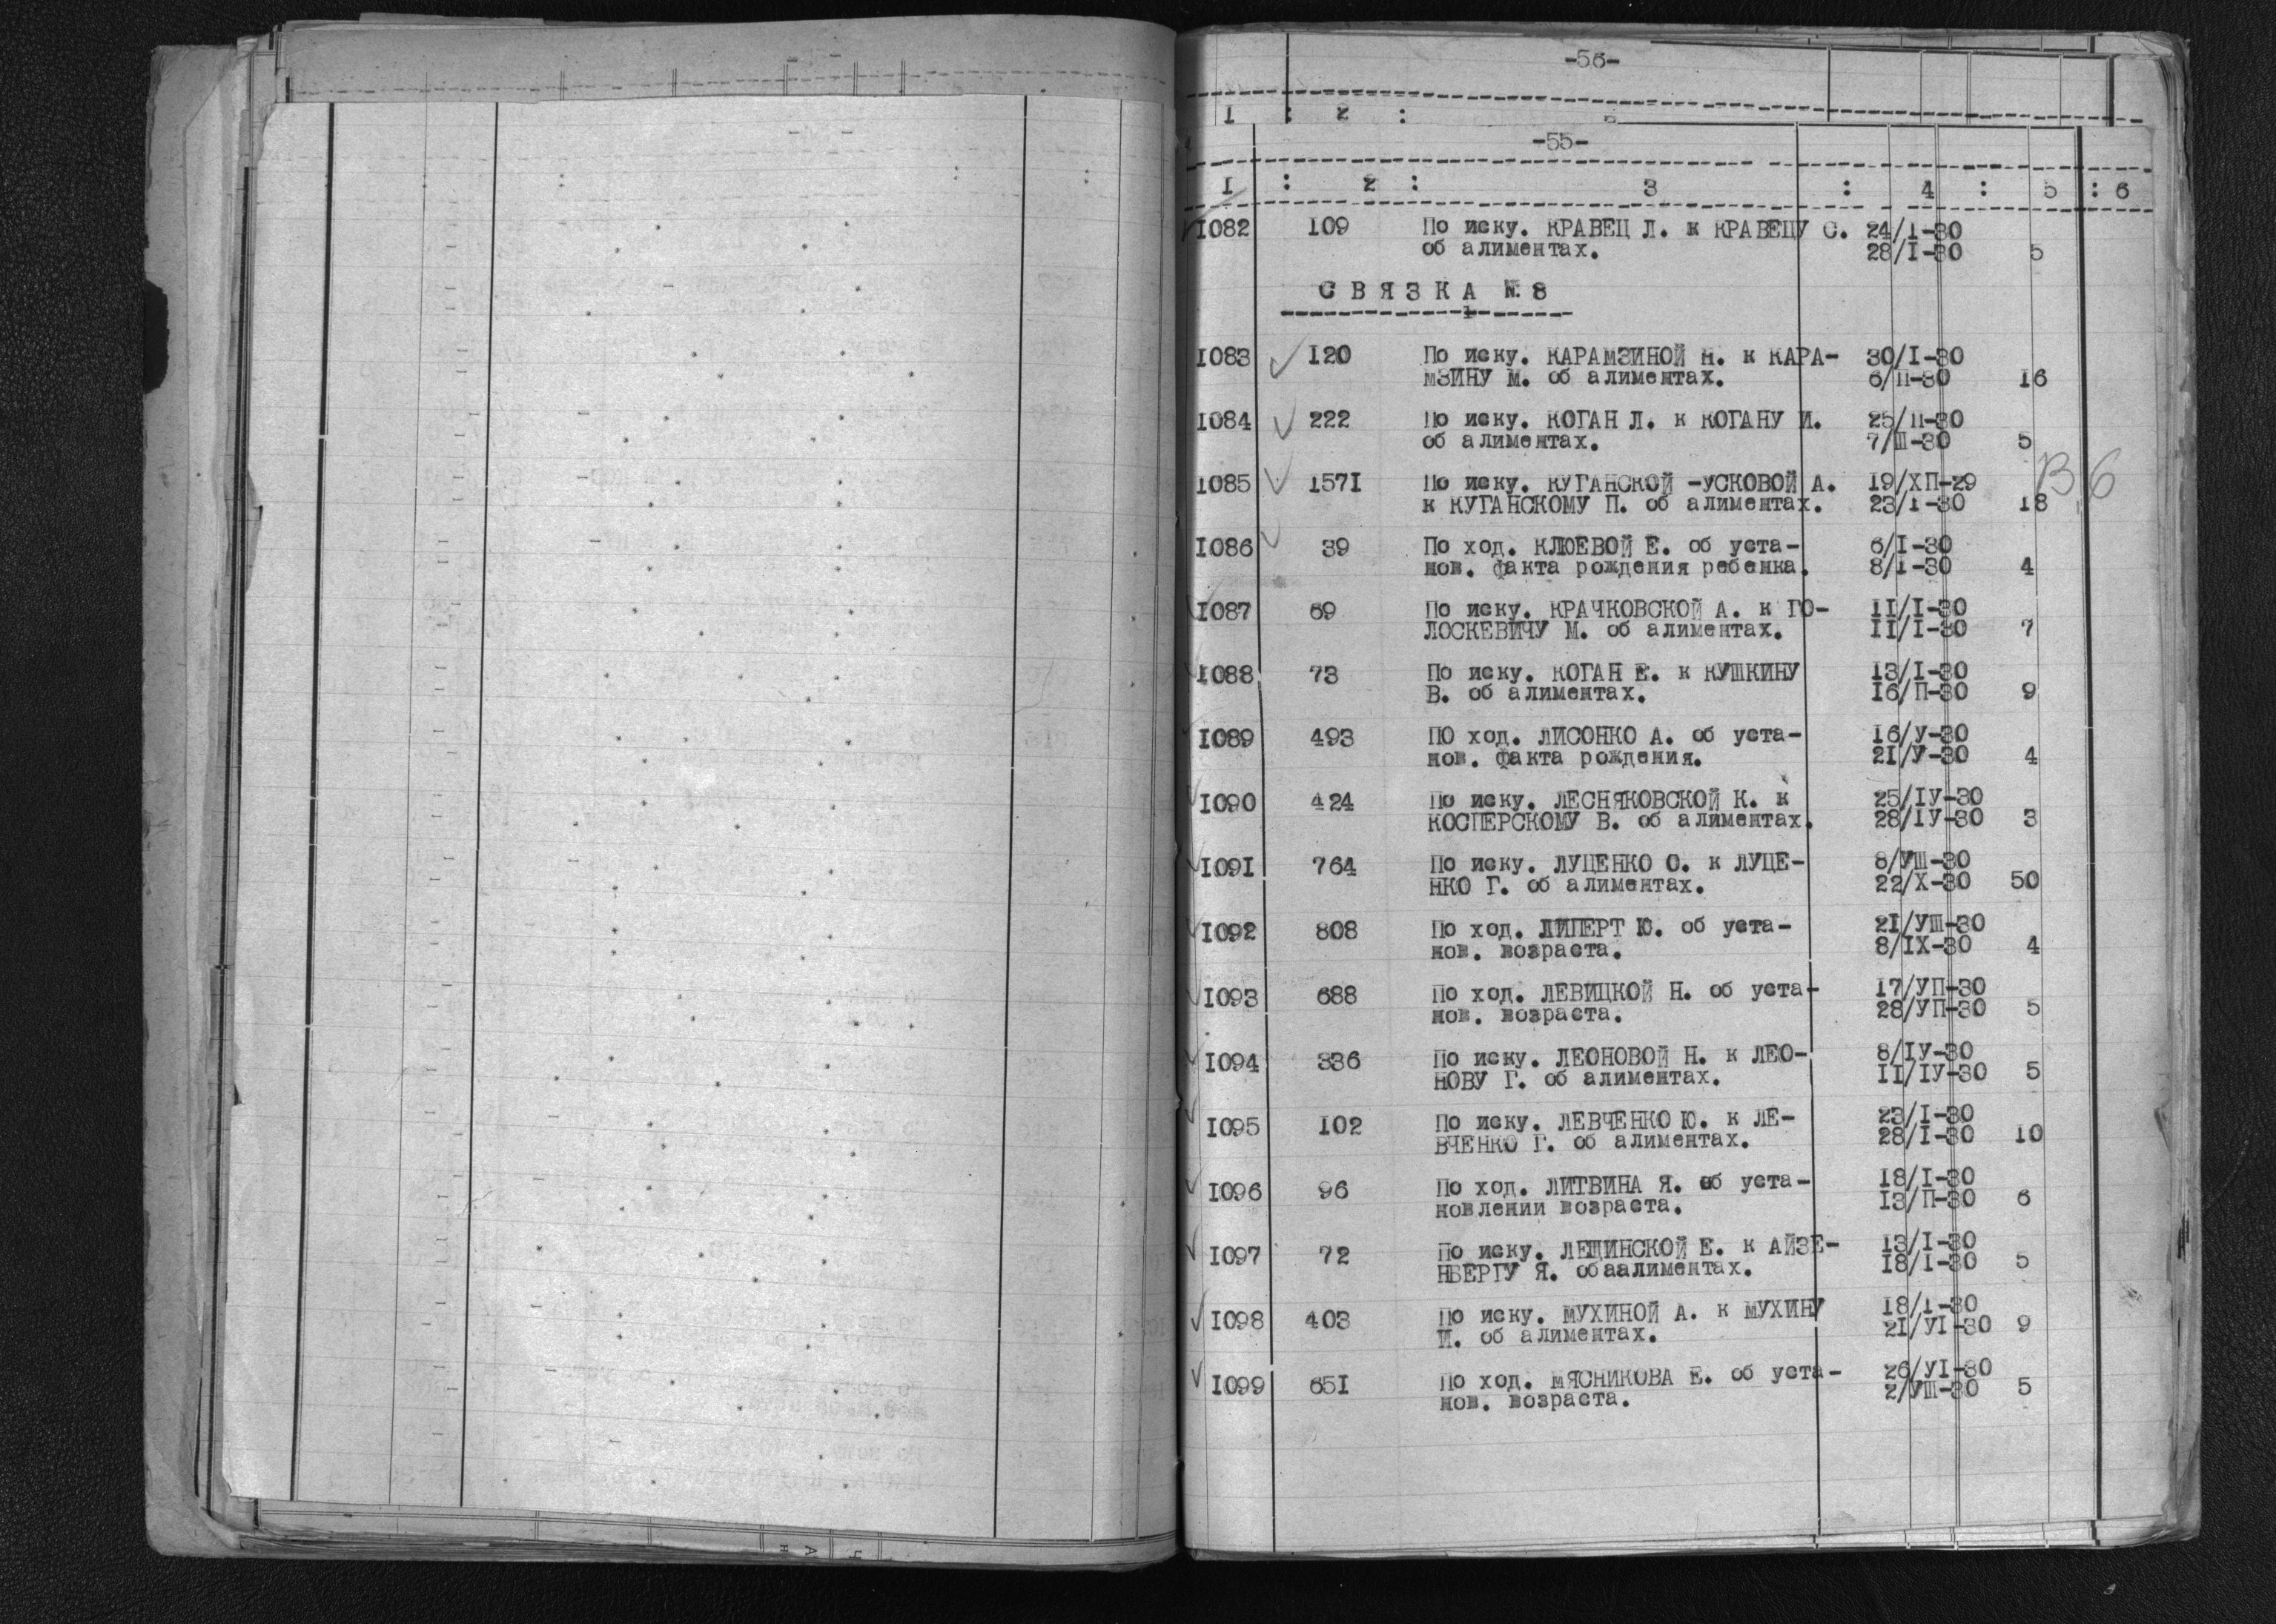 -56-
I : 2 :
-55-
I : 2 : 3 : 4 : 5 : 6
1082 109 По иску. КРАВЕЦ Л. к КРАВЕЦУ С. 24/I-30
об алиментах. 28/I-30 5
СВЯЗКА № 8
1083 120 По иску. КАРАМЗИНОЙ Н. к КАРА- 30/I-30
МЗИНУ М. об алиментах. 6/П-30 16
1084 222 По иску. КОГАН Л. к КОГАНУ И. 25/П-30
об алиментах. 7/Ш-30 5
1085 1571 По иску. КУГАНСКОЙ -УСКОВОЙ А. 19/ХП-29
к КУГАНСКОМУ П. об алиментах. 23/I-30 18
В 6
1086 39 По ход. КЛЮЕВОЙ Е. об уста- 6/I-30
нов. факта рождения ребенка. 8/I-30 4
1087 69 По иску. КРАЧКОВСКОЙ А. к ГО- II/I-30
ЛОСКЕВИЧУ М. об алиментах. II/I-30 7
1088 73 По иску. КОГАН Е. к КУШКИНУ 13/I-30
В. об алиментах. 16/П-30 9
1089 493 ПО ход. ЛИСОНКО А. об уста- 16/У-30
нов. факта рождения. 21/У-30 4
1090 424 По иску. ЛЕСНЯКОВСКОЙ К. к 25/IУ-30
КОСПЕРСКОМУ В. об алиментах. 28/IУ-30 3
1091 764 По иску. ЛУЦЕНКО О. к ЛУЦЕ- 8/УШ-30
НКО Г. об алиментах. 22/Х-30 50
1092 808 По ход. ЛИПЕРТ Ю. об уста- 21/УШ-30
нов. возраста. 8/IX-30 4
1093 688 По ход. ЛЕВИЦКОЙ Н. об уста- 17/УП-30
нов. возраста. 28/УП-30 5
1094 336 По иску. ЛЕОНОВОЙ Н. к ЛЕО- 8/IУ-30
НОВУ Г. об алиментах. II/IУ-30 5
1095 102 По иску. ЛЕВЧЕНКО Ю. к ЛЕ- 23/I-30
ВЧЕНКО Г. об алиментах. 28/I-30 10
1096 96 По ход. ЛИТВИНА Я. об уста- 18/I-30
новлении возраста. 13/П-30 6
1097 72 По иску. ЛЕЩИНСКОЙ Е. к АЙЗЕ- 13/I-30
НБЕРГУ Я. обаалиментах. 18/I-30 5
1098 403 По иску. МУХИНОЙ А. к МУХИНУ 18/I-30
И. об алиментах. 21/УI-30 9
1099 651 По ход. МЯСНИКОВА Е. об уста- 26/УI-30
нов. возраста. 2/УШ-30 5